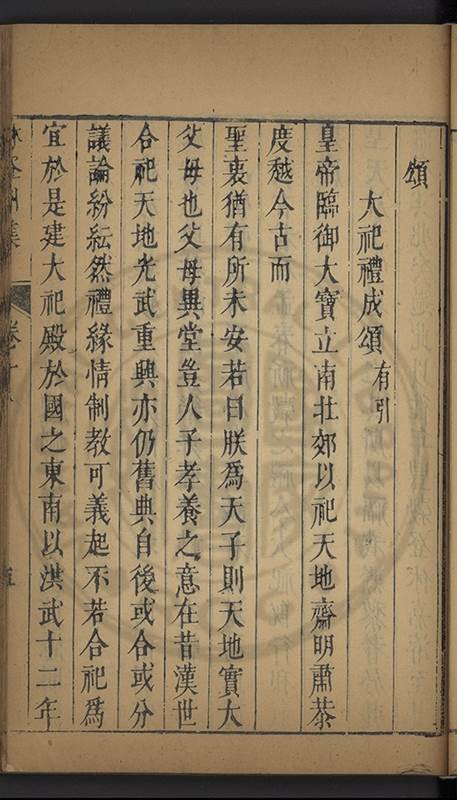 頌
大祀禮成頌有引
皇帝臨御大寶立南北郊以祀天地齋明肅恭
度越今古而
聖衷猶有所未安若曰朕爲天子則天地實大
父母也父母異堂豈人子孝養之意在昔漢世
合祀天地光武重興亦仍舊典自後或合或分
議論紛紜然禮緣情制教可義起不若合祀爲
宜於是建大祀殿於國之東南以洪武十二年
集 卷十